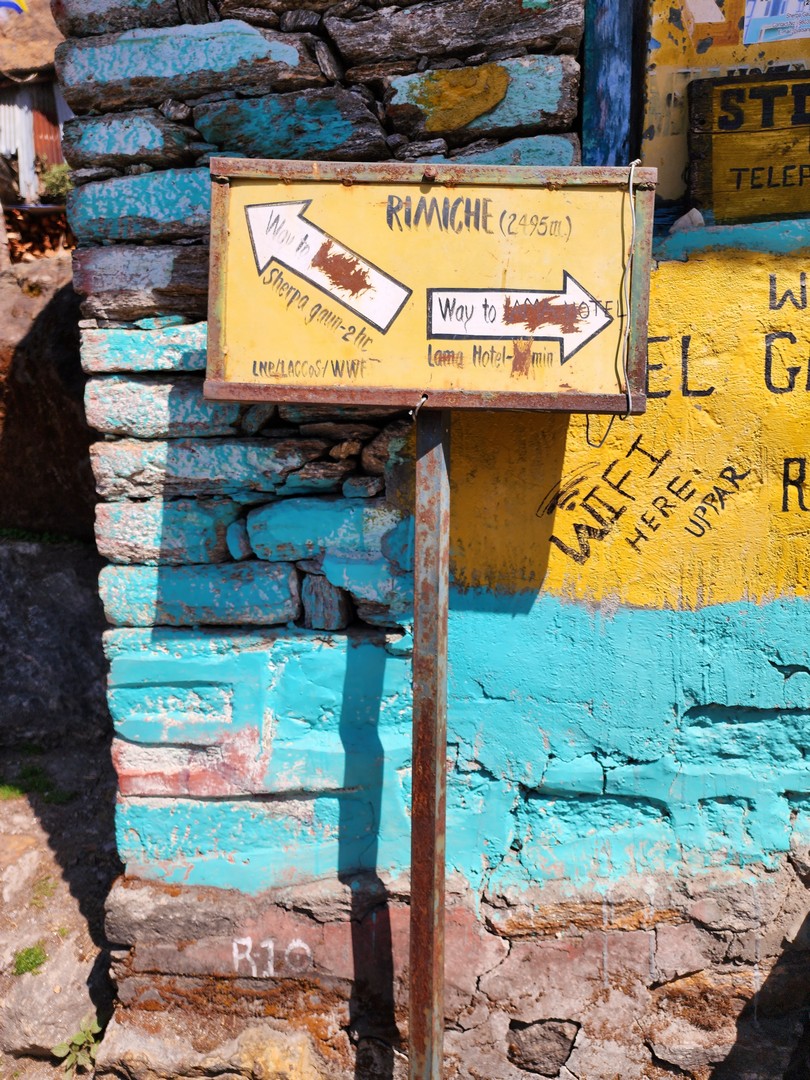 RIMICHE (2495m.)
Way to
Sherpa gaun-2hr
Way to LAMA HOTEL
Lama Hotel- min
LNP/LACCoS/WWF
STE
TELEP
W
EL G
R
WIFI
HERE:
UPPAR
R10